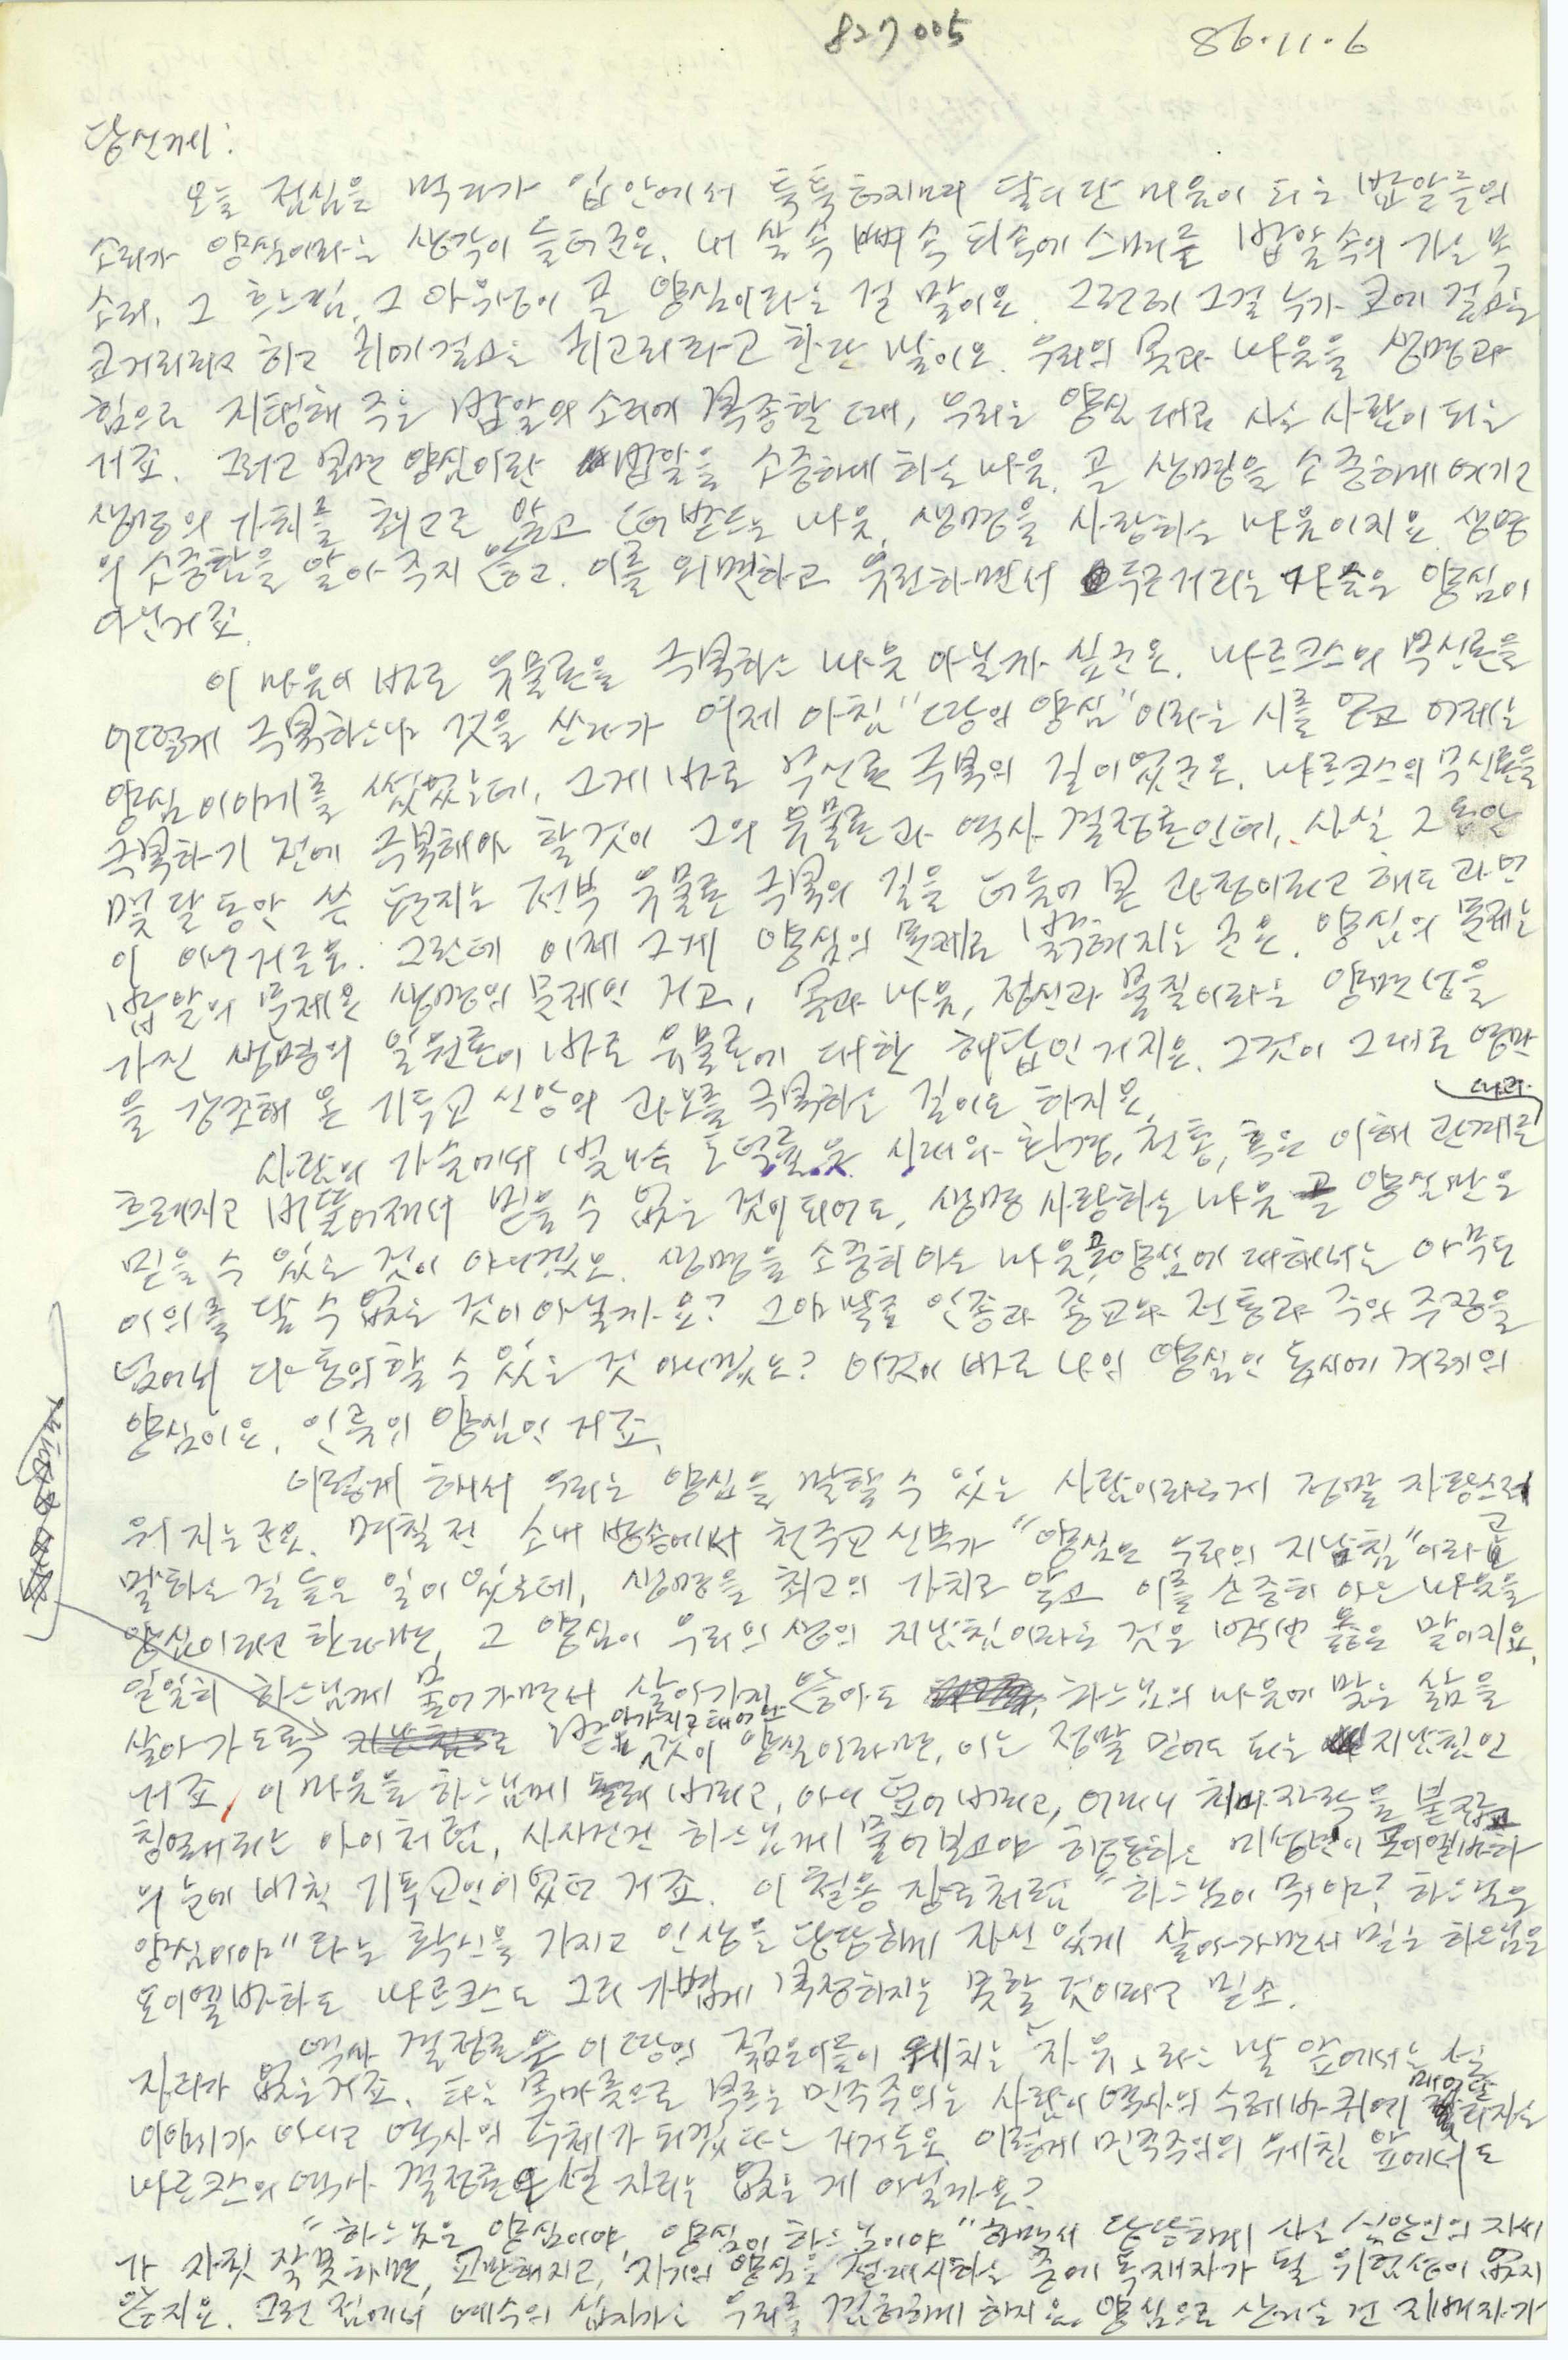 827005
86.11.6
당신께:
오늘 점심을 먹다가 입 안에서 톡톡 터지며 달디 단 마음이 되는 밥알들의
소리가 양심이라는 생각이 들더군요. 내 살 속 뼈 속 피 속에 스며들 밥알 속의 가는 목
소리, 그 흐느낌, 그 아우성이 곧 양심이라는 걸 말이오. 그런데 그걸 누가 코에 걸으면
코거리라고 하고 귀에 걸으면 귀고리라고 한단 말이오. 우리의 몸과 마음을 생명과
힘으로 지탱해 주는 밥알의 소리에 복종할 때, 우리는 양심 대로 사는 사람이 되는
거죠. 그러고 보면 양심이란 밥알을 소중하게 하는 마음, 곧 생명을 소중하게 여기고
생명의 가치를 최고로 알고 떠받드는 마음, 생명을 사랑하는 마음이지요. 생명
의 소중함을 알아 주지 않고, 이를 외면하고 유린하면서 두근거리는 가슴은 양심이
아닌거죠.
이 마음이 바로 유물론을 극복하는 마음 아닐까 싶군요. 마르크스의 무신론을
어떻게 극복하느냐는 것을 쓰다가 어제 아침 "땅의 양심"이라는 시를 얻고 어제는
양심 이야기를 썼었는데, 그게 바로 무신론 극복의 길이었군요. 마르크스의 무신론을
극복하기 전에 극복해야 할 것이 그의 유물론과 역사 결정론인데, 사실 그동안
몇 달 동안 쓴 편지는 전부 유물론 극복의 길을 더듬어 본 과정이라고 해도 과언
이 아니거든요. 그런데 이제 그게 양심의 문제로 밝혀지는군요. 양심의 문제는
밥알의 문제요 생명의 문제인 거고, 몸과 마음, 정신과 물질이라는 양면성을
가진 생명의 일원론이 바로 유물론에 대한 해답인 거지요. 그것이 그대로 영만
을 강조해 온 기독교 신앙의 과오를 극복하는 길이기도 하지요.
사람의 가슴마다 빛나는 도덕률은 시대와 환경, 전통, 혹은 이해 관계를 따라
흐려지고 비뚤어져서 믿을 수 없는 것이 되어도, 생명 사랑하는 마음 곧 양심만은
믿을 수 있는 것이 아니겠오. 생명을 소중히 아는 마음, 곧 양심에 대해서는 아무도
이의를 달 수 없는 것이 아닐까요? 그야말로 인종과 종교와 전통과 주의 주장을
넘어서 다 동의할 수 있는 것 아니겠오? 이것이 바로 나의 양심인 동시에 겨레의
양심이요, 인류의 양심인 거죠.
이렇게 해서 우리는 양심을 말할 수 있는 사람이라는게 정말 자랑스러
워 지는군요. 며칠 전 소내 방송에서 천주교 신부가 "양심은 우리의 지남침"이라고
말하는 걸 들은 일이 있는데, 생명을 최고의 가치로 알고 이를 소중히 아는 마음을
양심이라고 한다면, 그 양심이 우리의 생의 지남침이라는 것은 백번 옳은 말이지요.
일일히 하느님께 물어가면서 살아가지 않아도 하느님의 마음에 맞는 삶을
살아가도록 받아가지고 태어난 것이 양심이라면, 이는 정말 믿어도 되는 지남침인
거죠. 이 마음을 하느님께 돌려 버리고, 아니 잃어버리고, 어머니 치마자락을 붙잡고
칭얼거리는 아이처럼, 사사건건 하느님께 물어보고야 행동하는 미성년이 포이엘바하
의 눈에 비친 기독교인이었던 거죠. 이철용 장로처럼 "하느님이 뭐야? 하느님은
양심이야"라는 확신을 가지고 인생을 당당하게 자신 있게 살아가면서 믿는 하느님은
포이엘바하도 마르크스도 그리 가볍게 부정하지는 못할 것이라고 믿소.
역사 결정론은 이 땅의 젊은이들이 외치는 "자유"라는 말 앞에서는 설
자리가 없는거죠. 타는 목마름으로 부르는 민주주의는 사람이 역사의 수레바퀴에 매어달려 지는
이 아니고 역사의 주체가 되겠다는 거거든요. 이렇게 민주주의의 외침 앞에서도
마르크스의 역사 결정론은 설 자리는 없는 게 아닐까요?
"하느님은 양심이야 양심이 하느님이야" 하면서 당당하게 사는 신앙인의 자세
가 자칫 잘못하면, 교만해지고, 자기의 양심을 절대시하는 중에 독재자가 될 위험성이 없지
않지요. 그런 점에서 예수의 십자가는 우리를 겸허하게 하지요. 양심으로 산다는 건 지배자가